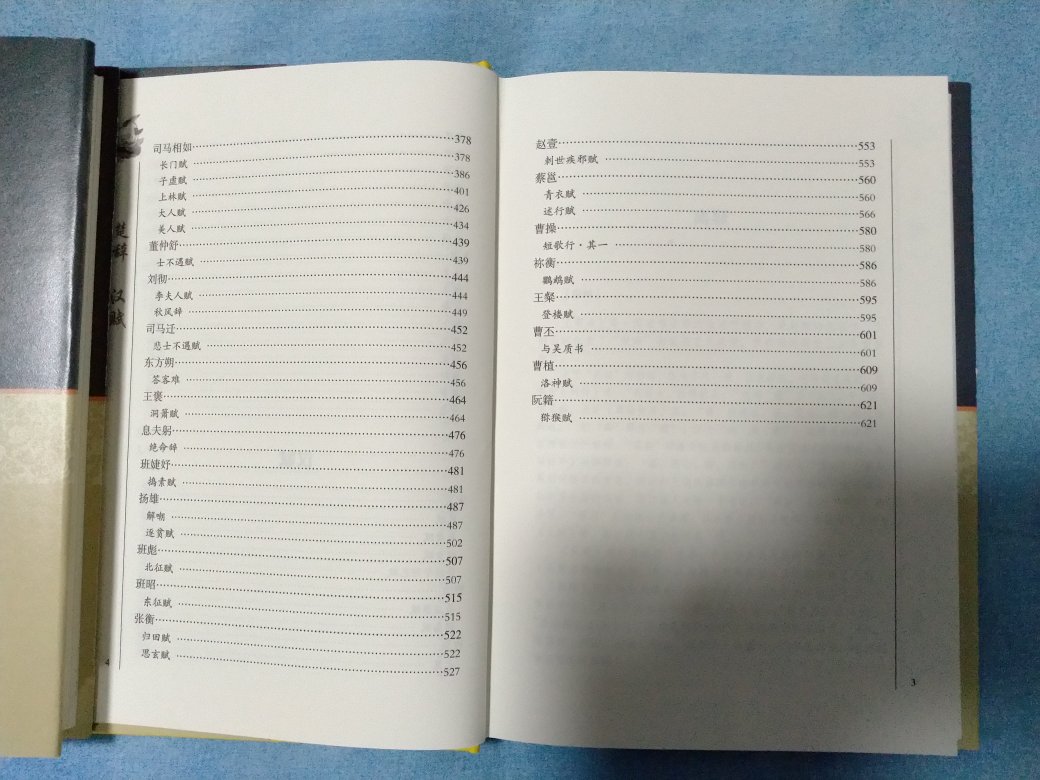 楚辞 汉赋
司马相如……378
长门赋……378
子虚赋……386
上林赋……401
大人赋……426
美人赋……434
董仲舒……439
士不遇赋……439
刘彻……444
李夫人赋……444
秋风辞……449
司马迁……452
悲士不遇赋……452
东方朔……456
答客难……456
王褒……464
洞箫赋……464
息夫躬……476
绝命辞……476
班婕妤……481
捣素赋……481
扬雄……487
解嘲……487
逐贫赋……502
班彪……507
北征赋……507
班昭……515
东征赋……515
张衡……522
归田赋……522
思玄赋……527
4
赵壹……553
刺世疾邪赋……553
蔡邕……560
青衣赋……560
述行赋……566
曹操……580
短歌行·其一……580
祢衡……586
鹦鹉赋……586
王粲……595
登楼赋……595
曹丕……601
与吴质书……601
曹植……609
洛神赋……609
阮籍……621
猕猴赋……621
3